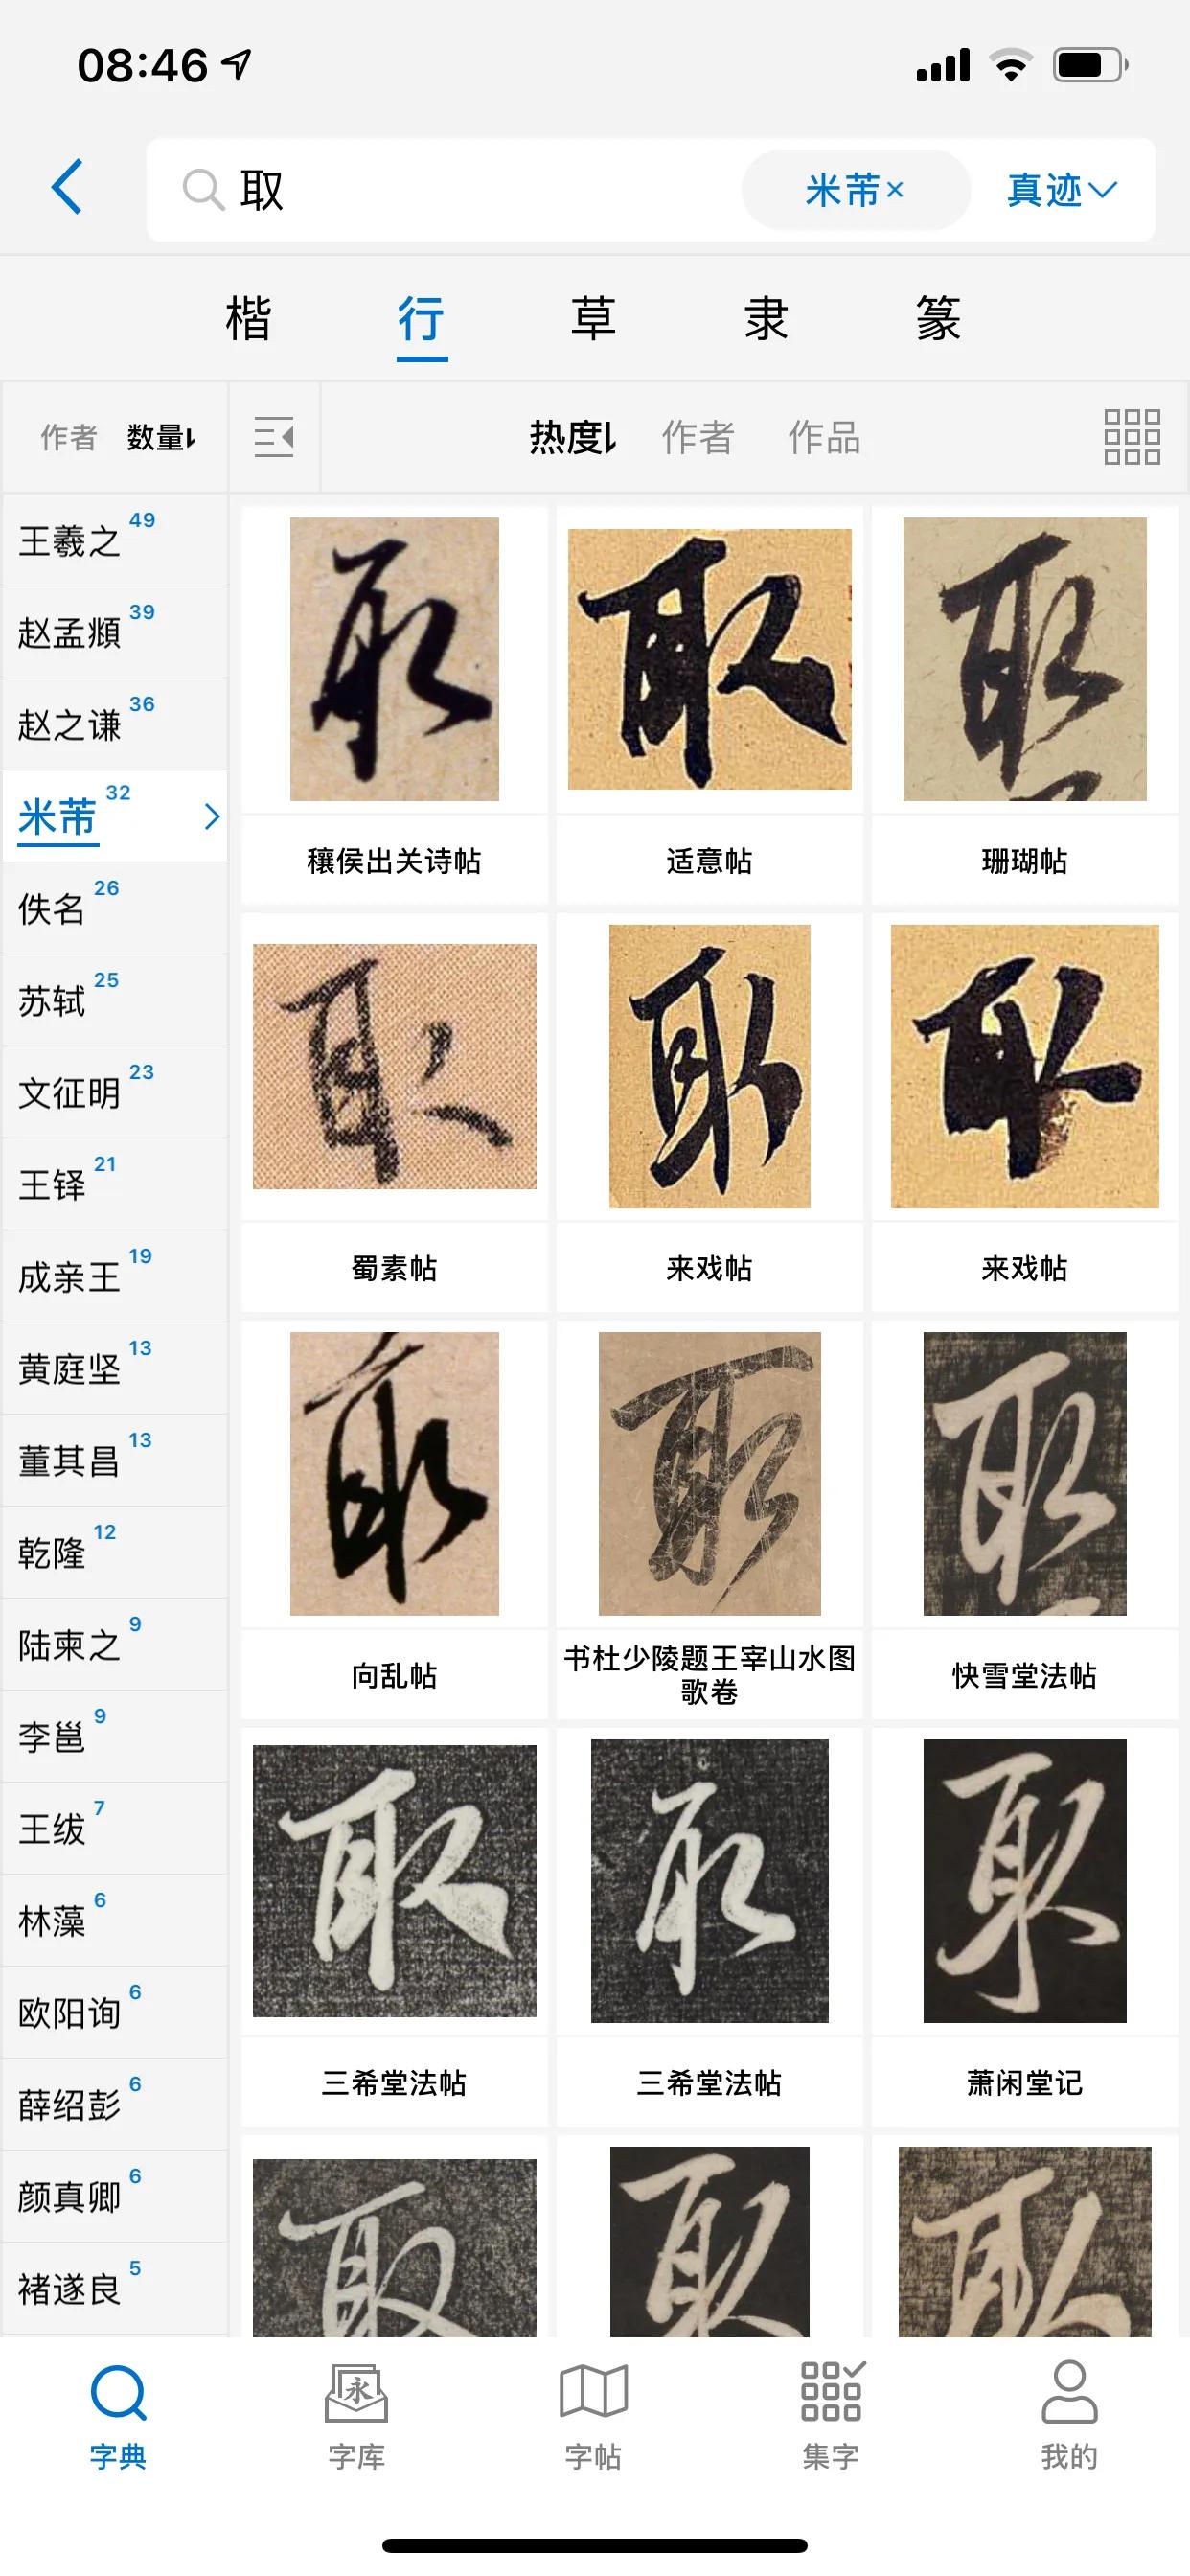 08:46
取
米芾×
真迹
楷 行 草 隶 篆
作者 数量
热度 作者 作品
王羲之 49
赵孟頫 39
赵之谦 36
米芾 32
佚名 26
苏轼 25
文征明 23
王铎 21
成亲王 19
黄庭坚 13
董其昌 13
乾隆 12
陆柬之 9
李邕 9
王绂 7
林藻 6
欧阳询 6
薛绍彭 6
颜真卿 6
褚遂良 5
取 取 取
穰侯出关诗帖 适意帖 珊瑚帖
取 取 取
蜀素帖 来戏帖 来戏帖
取 取 取
向乱帖 书杜少陵题王宰山水图
歌卷 快雪堂法帖
取 取 取
三希堂法帖 三希堂法帖 萧闲堂记
取 取 取
永
字典 字库 字帖 集字 我的